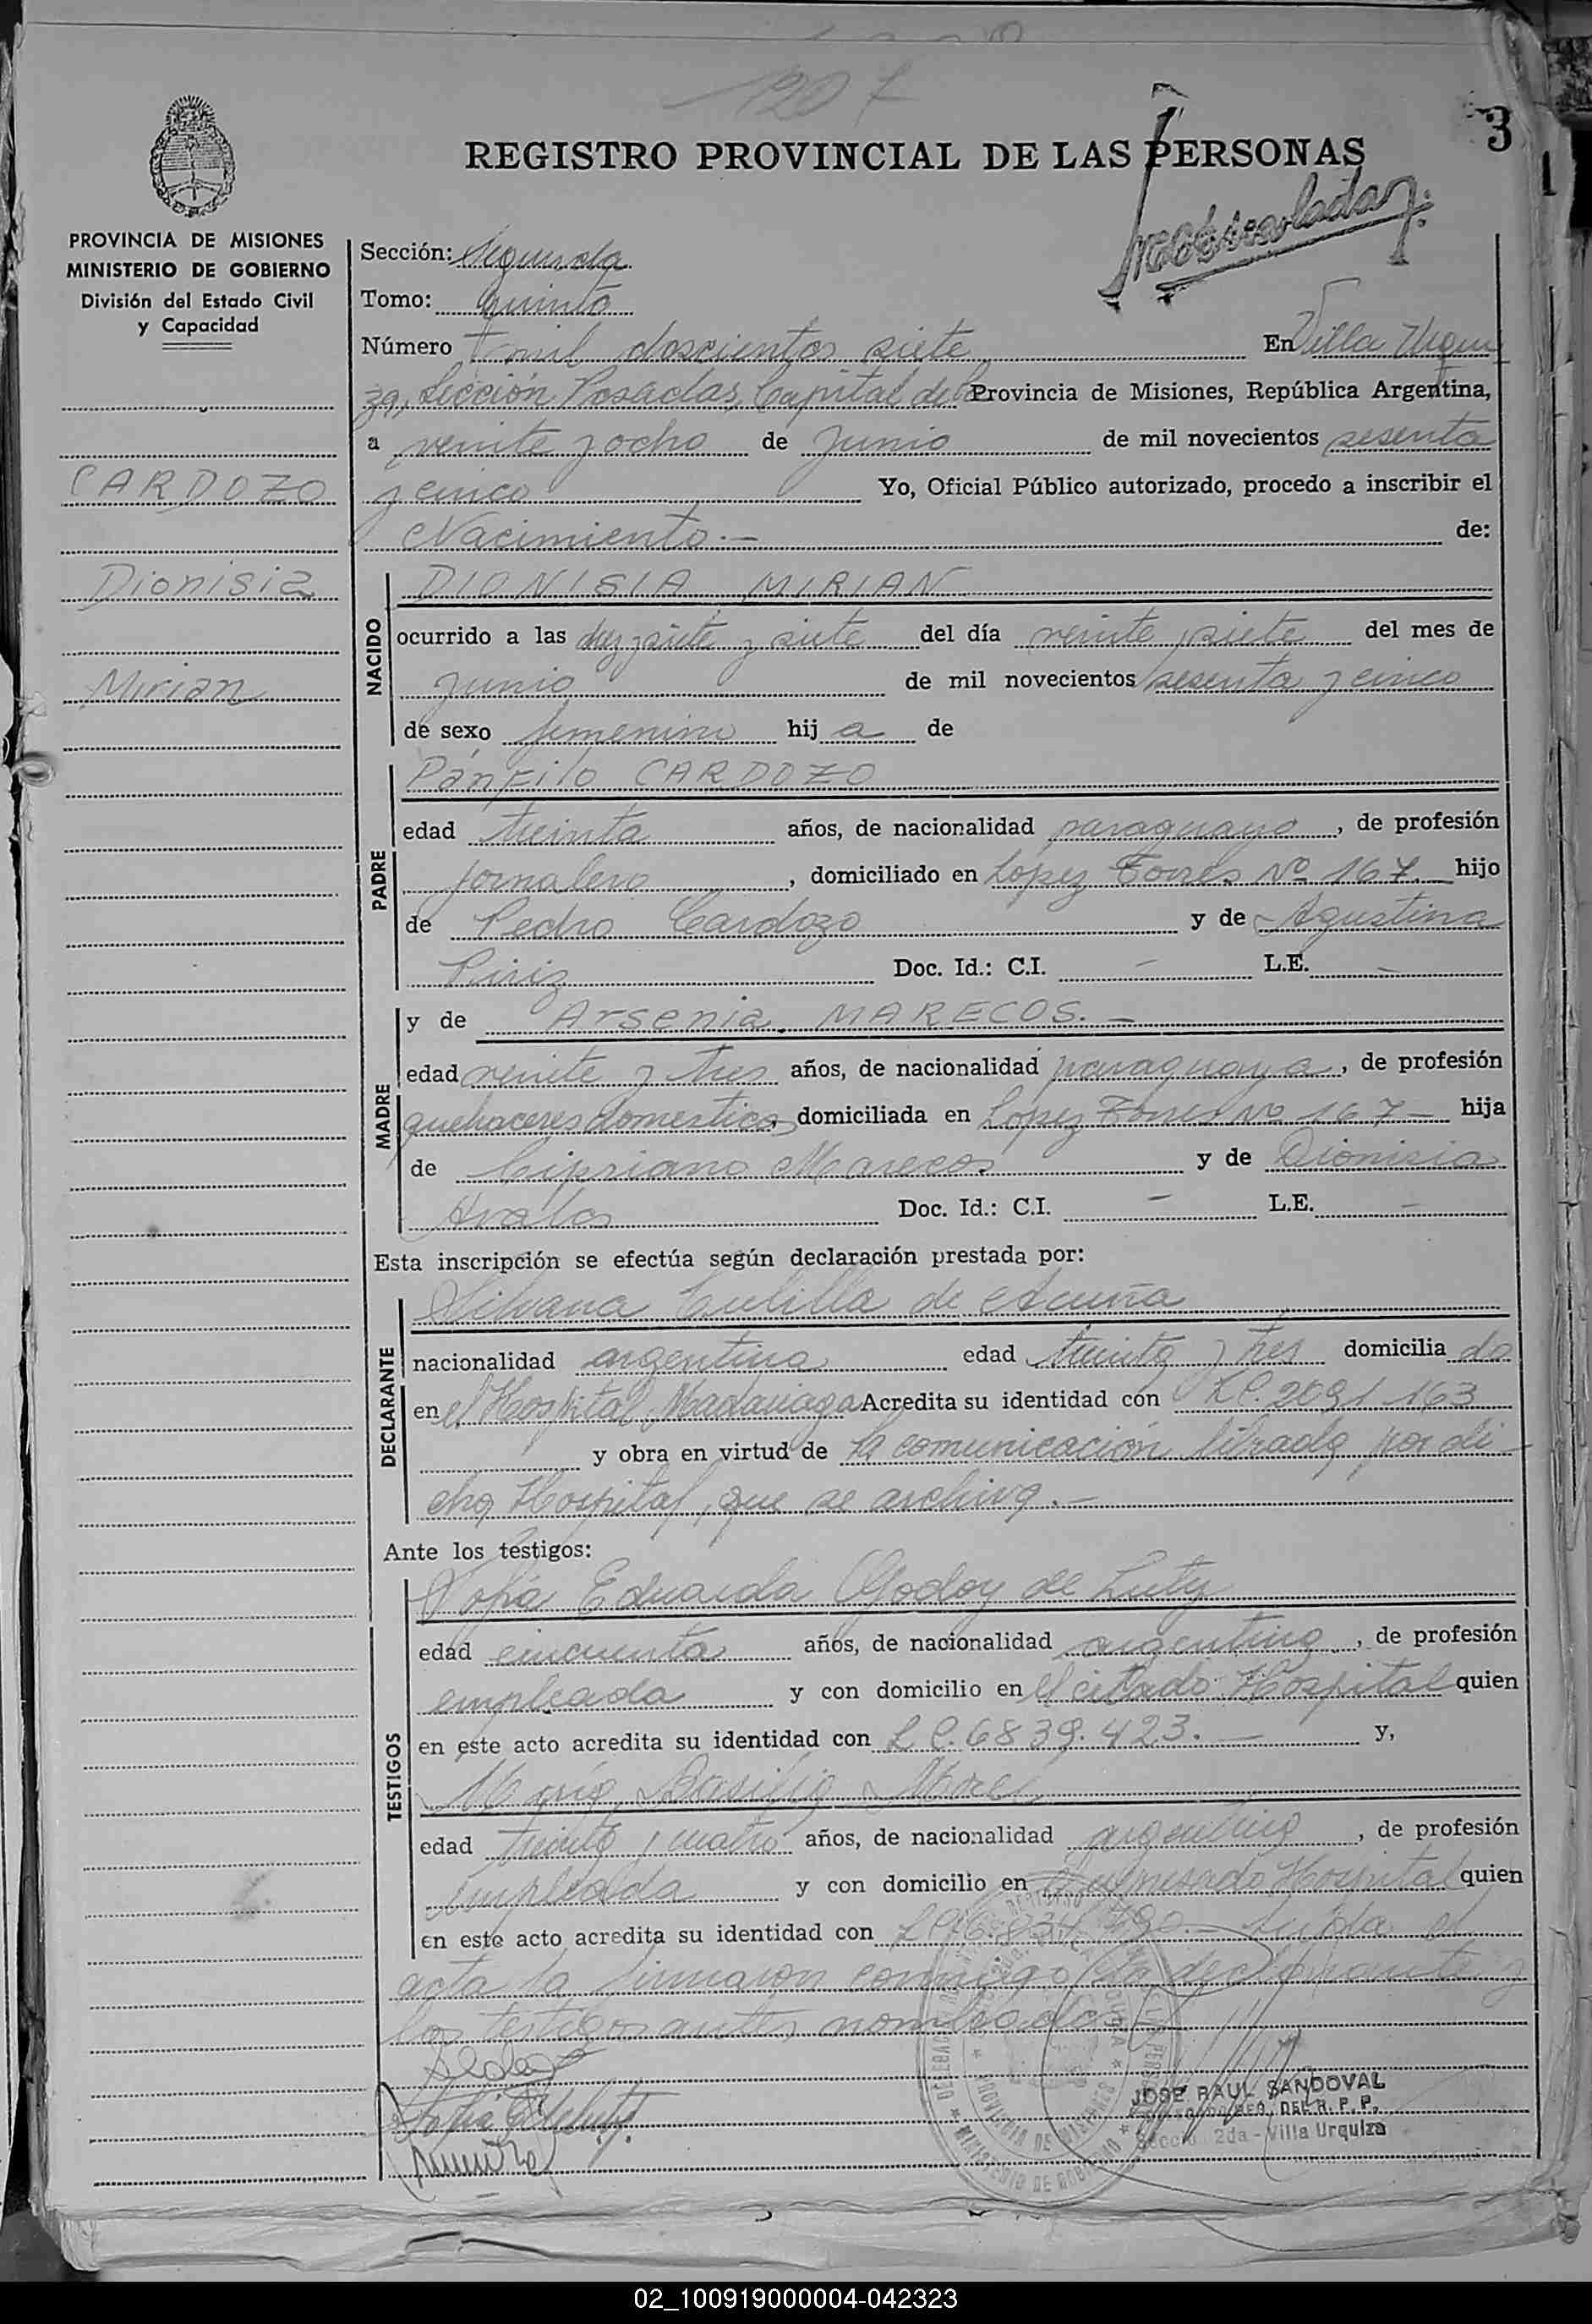 1207
3
REGISTRO PROVINCIAL DE LAS PERSONAS
PROVINCIA DE MISIONES
MINISTERIO DE GOBIERNO
División del Estado Civil
y Capacidad
CARDOZO
Dionisia
Mirian
Sección: Segunda
Tomo: quinto
Número mil doscientos siete En Villa Urqui
za, Sección Posadas, Capital de la Provincia de Misiones, República Argentina,
a veinte y ocho de Junio de mil novecientos sesenta
y cinco Yo, Oficial Público autorizado, procedo a inscribir el
Nacimiento.— de:
NACIDO
DIONISIA MIRIAN
ocurrido a las diez y siete y siete del día veinte y siete del mes de
junio de mil novecientos sesenta y cinco
de sexo femenino hij a de
PADRE
Pánfilo CARDOZO
edad treinta años, de nacionalidad paraguayo, de profesión
jornalero, domiciliado en López Torres Nº 167. hijo
de Pedro Cardozo y de Agustina
Piriz Doc. Id.: C.I. — L.E. —
MADRE
y de Arsenia MARECOS.—
edad veinte y tres años, de nacionalidad paraguaya, de profesión
quehaceres domesticos, domiciliada en López Torres Nº 167— hija
de Cipriano Marecos y de Dionisia
Avalos Doc. Id.: C.I. — L.E. —
Esta inscripción se efectúa según declaración prestada por:
DECLARANTE
Silvana Cubilla de Acuña
nacionalidad argentina edad treinta y tres domicilia da
en el Hospital Madariaga Acredita su identidad con L.C. 2091.163
y obra en virtud de la comunicación librada por di
cho Hospital, que se archiva.—
Ante los testigos:
TESTIGOS
Sofía Eduarda Godoy de Luty
edad cincuenta años, de nacionalidad argentina, de profesión
empleada y con domicilio en el citado Hospital quien
en este acto acredita su identidad con L.C. 6839.423.— y,
María Basilia Morel
edad treinta y cuatro años, de nacionalidad argentina, de profesión
empleada y con domicilio en el expresado Hospital quien
en este acto acredita su identidad con Leída el
acta la firmaron conmigo la declarante y
los testigos antes nombrados
JOSÉ RAUL SANDOVAL
DEL R. P. P.
Sección 2da - Villa Urquiza
PROVINCIA DE MISIONES
MINISTERIO DE GOBIERNO
02_100919000004-042323